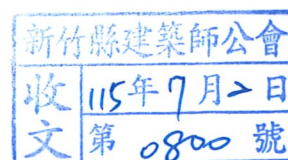 新竹縣建築師公會
收文
115年7月2日
第0800號